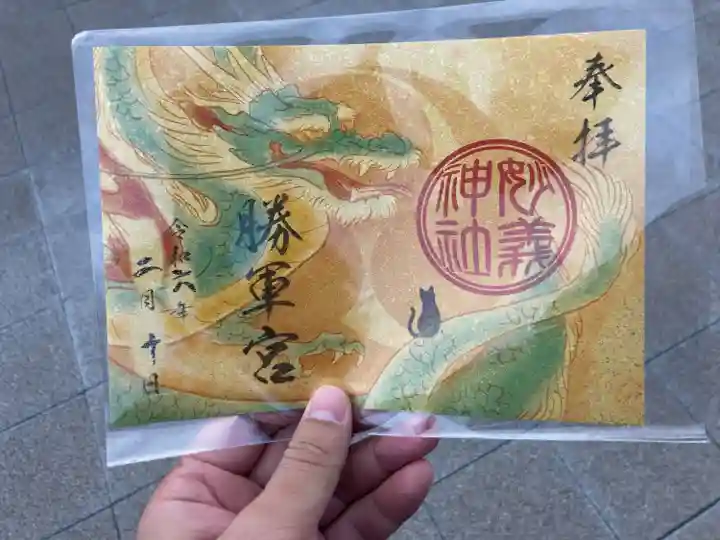 奉拝
妙義
神社
勝軍宮
令和六年
二月
日